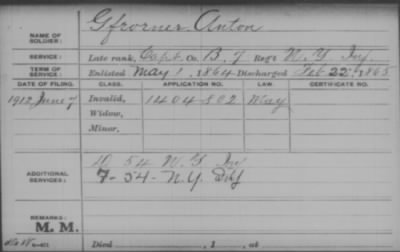 NAME OF SOLDIER: Gfrorner Anton
SERVICE: Late rank, Capt. Co. B, 7 Reg't N.Y. Inf.
TERM OF SERVICE: Enlisted May 1, 1864 Discharged Feb 22, 1865
DATE OF FILING. CLASS. APPLICATION NO. LAW. CERTIFICATE NO.
1912 June 7 Invalid, 1404802 May
Widow,
Minor,
ADDITIONAL SERVICES: 54 N.Y. Inf
7-54-N.Y.
REMARKS:
M. M.
Died , 1 , at